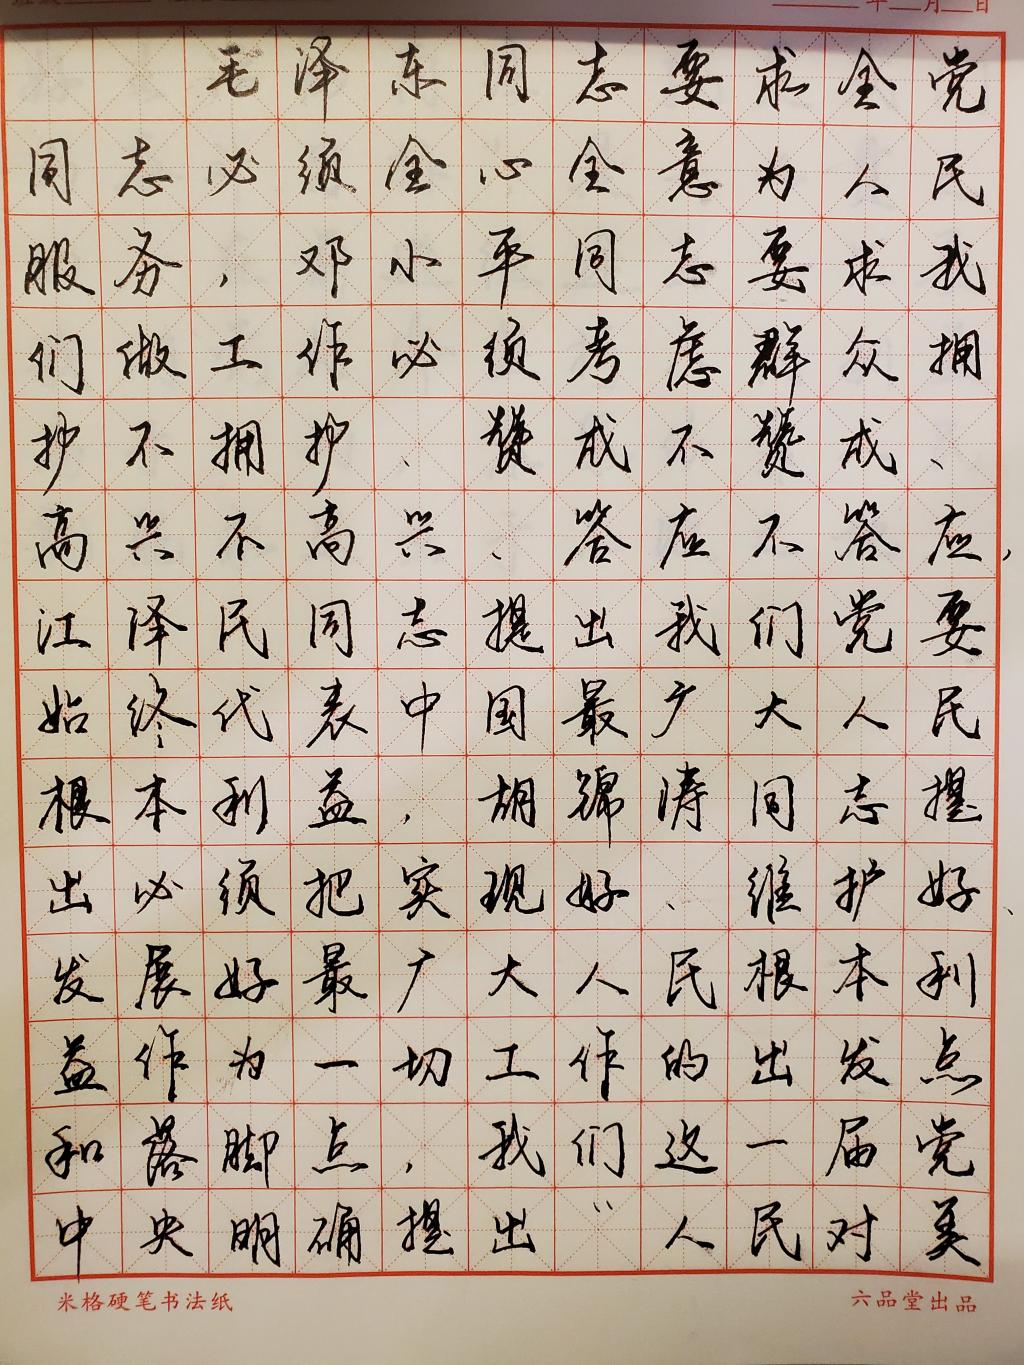 年 月 日
毛泽东同志要求全党
同志必须全心全意为人民
服务，邓小平同志要求我
们做工作必须考虑群众拥
护不拥护、赞成不赞成、
高兴不高兴、答应不答应，
江泽民同志提出我们党要
始终代表中国最广大人民
根本利益，胡锦涛同志提
出必须把实现好、维护好、
发展好最广大人民根本利
益作为一切工作的出发点
和落脚点，我们这一届党
中央明确提出“人民对美
米格硬笔书法纸 六品堂出品